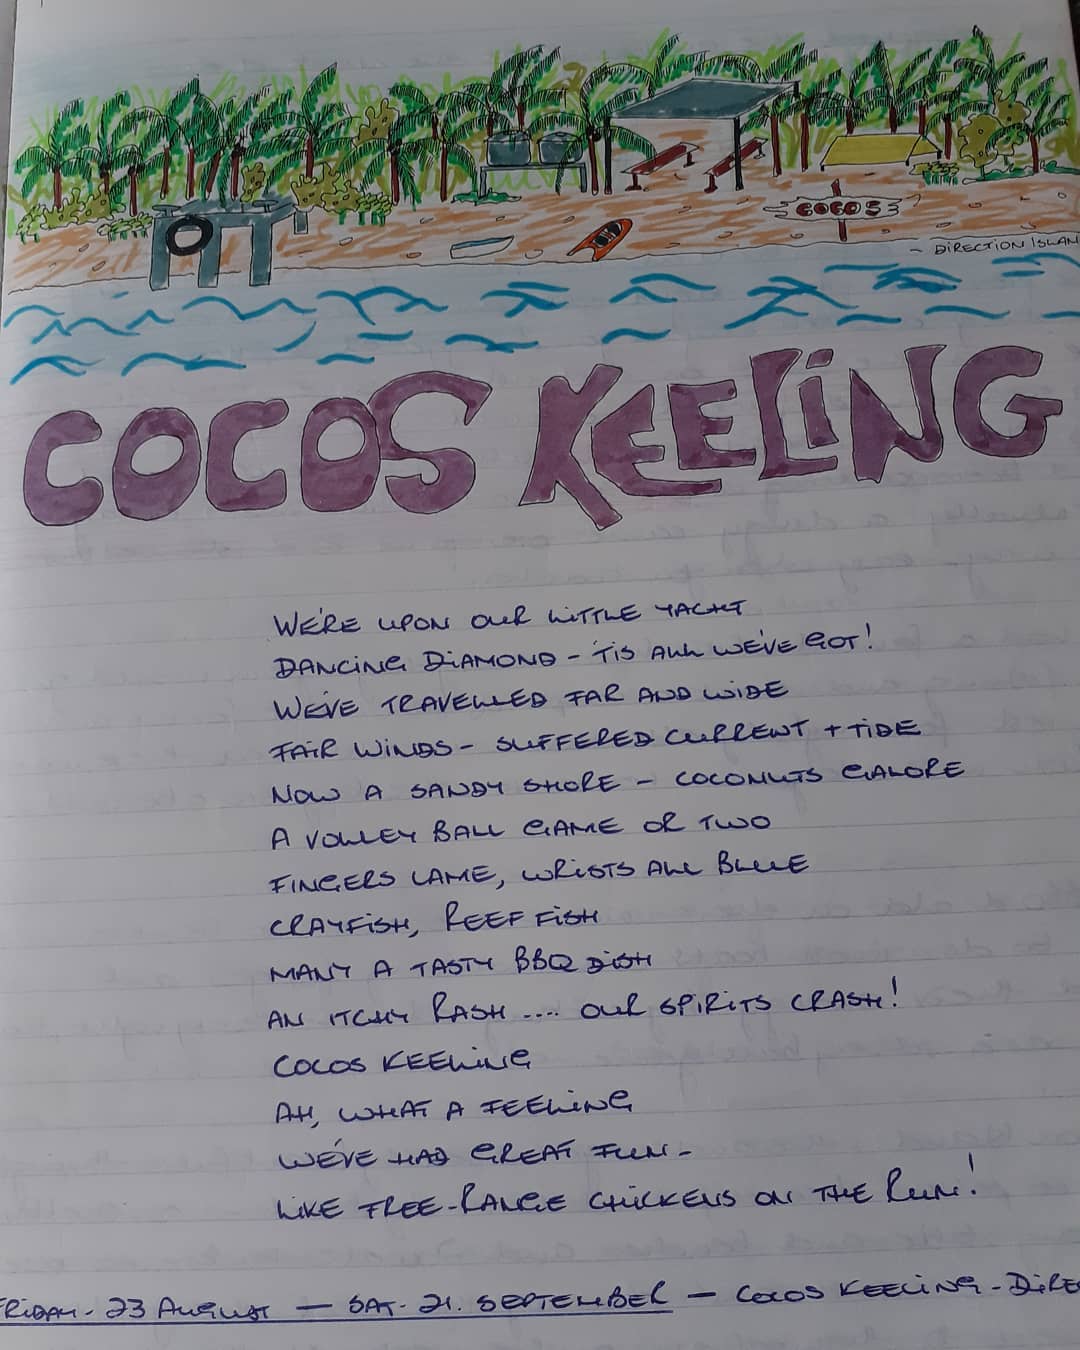 COCOS
- DIRECTION ISLAN
COCOS KEELING
WE'RE UPON OUR LITTLE YACHT
DANCING DIAMOND - 'TIS ALL WE'VE GOT!
WE'VE TRAVELLED FAR AND WIDE
FAIR WINDS - SUFFERED CURRENT + TIDE
NOW A SANDY SHORE - COCONUTS GALORE
A VOLLEY BALL GAME OR TWO
FINGERS LAME, WRISTS ALL BLUE
CRAYFISH, REEF FISH
MANY A TASTY BBQ DISH
AN ITCHY RASH .... OUR SPIRITS CRASH!
COCOS KEELING
AH, WHAT A FEELING
WE'VE HAD GREAT FUN -
LIKE FREE-RANGE CHICKENS ON THE RUN!
FRIDAY - 23 AUGUST — SAT - 21. SEPTEMBER — COCOS KEELING - DIREC